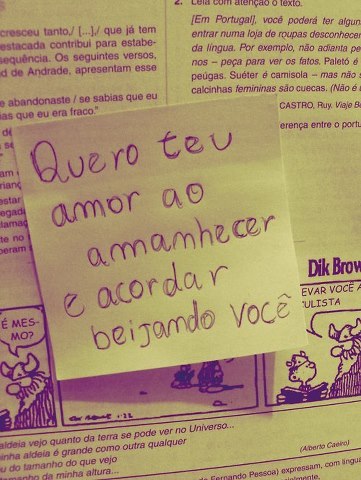 cresceu tanto,/ [...],/ que já tem
estacada contribui para estabe-
sequência. Os seguintes versos,
d de Andrade, apresentam esse
e abandonaste / se sabias que eu
ias que eu era fraco."
2. Leia com atenção o texto.
[Em Portugal], você poderá ter algun
entrar numa loja de roupas desconhecer
da língua. Por exemplo, não adianta pe
nos – peça para ver os fatos. Paletó é
peúgas. Suéter é camisola – mas não s
calcinhas femininas são cuecas. (Não é
CASTRO, Ruy. Viaje B
erença entre o portu
Quero teu
amor ao
amanhecer
e acordar
beijando você
Dik Brow
É MES-
MO?
EVAR VOCÊ A
ULISTA
aldeia vejo quanto da terra se pode ver no Universo...
inha aldeia é grande como outra qualquer
u do tamanho do que vejo
tamanho da minha altura...
(Alberto Caeiro)
Fernando Pessoa) expressam, com lingua